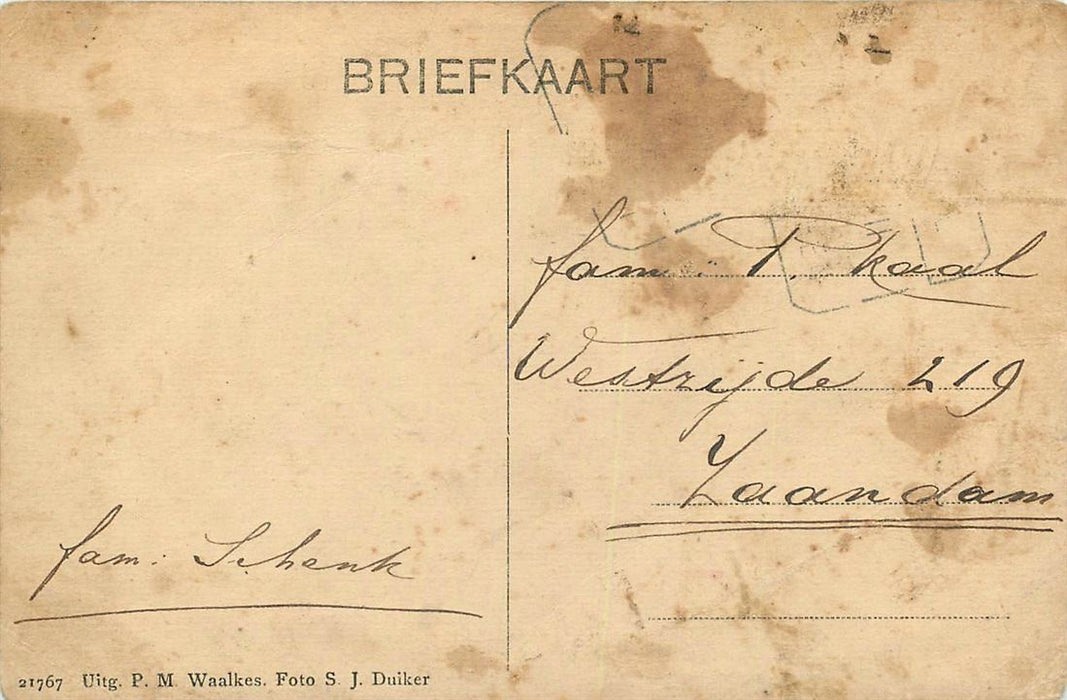 BRIEFKAART
fam: P. Kaal
Westzijde 219
Zaandam
fam: Schenk
21767 Uitg. P. M. Waalkes. Foto S. J. Duiker